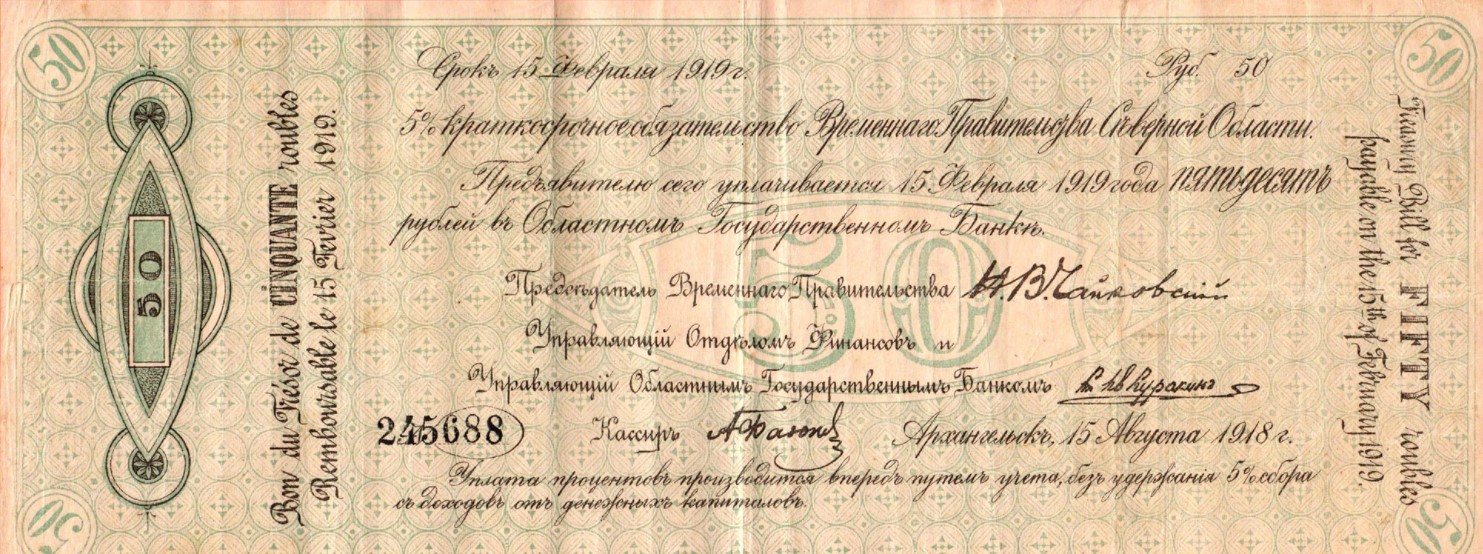 50
50
Срокъ 15 Февраля 1919 г.
Руб. 50
5% краткосрочное обязательство Временнаго Правительства Сѣверной Области.
Предъявителю сего уплачивается 15 Февраля 1919 года пятьдесятъ
рублей въ Областномъ Государственномъ Банкѣ.
50
Предсѣдатель Временнаго Правительства Н. В. Чайковскій
Управляющій Отдѣломъ Финансовъ и
Управляющій Областнымъ Государственнымъ Банкомъ Куракинъ
245688
Кассиръ
Архангельскъ, 15 Августа 1918 г.
Уплата процентовъ производится впередъ путемъ учета, безъ удержанія 5% сбора
съ доходовъ отъ денежныхъ капиталовъ.
50
Bon du Trésor de CINQUANTE roubles
Remboursable le 15 Fevrier 1919.
Treasury Bill for FIFTY roubles
payable on the 15th of February 1919.
50
50